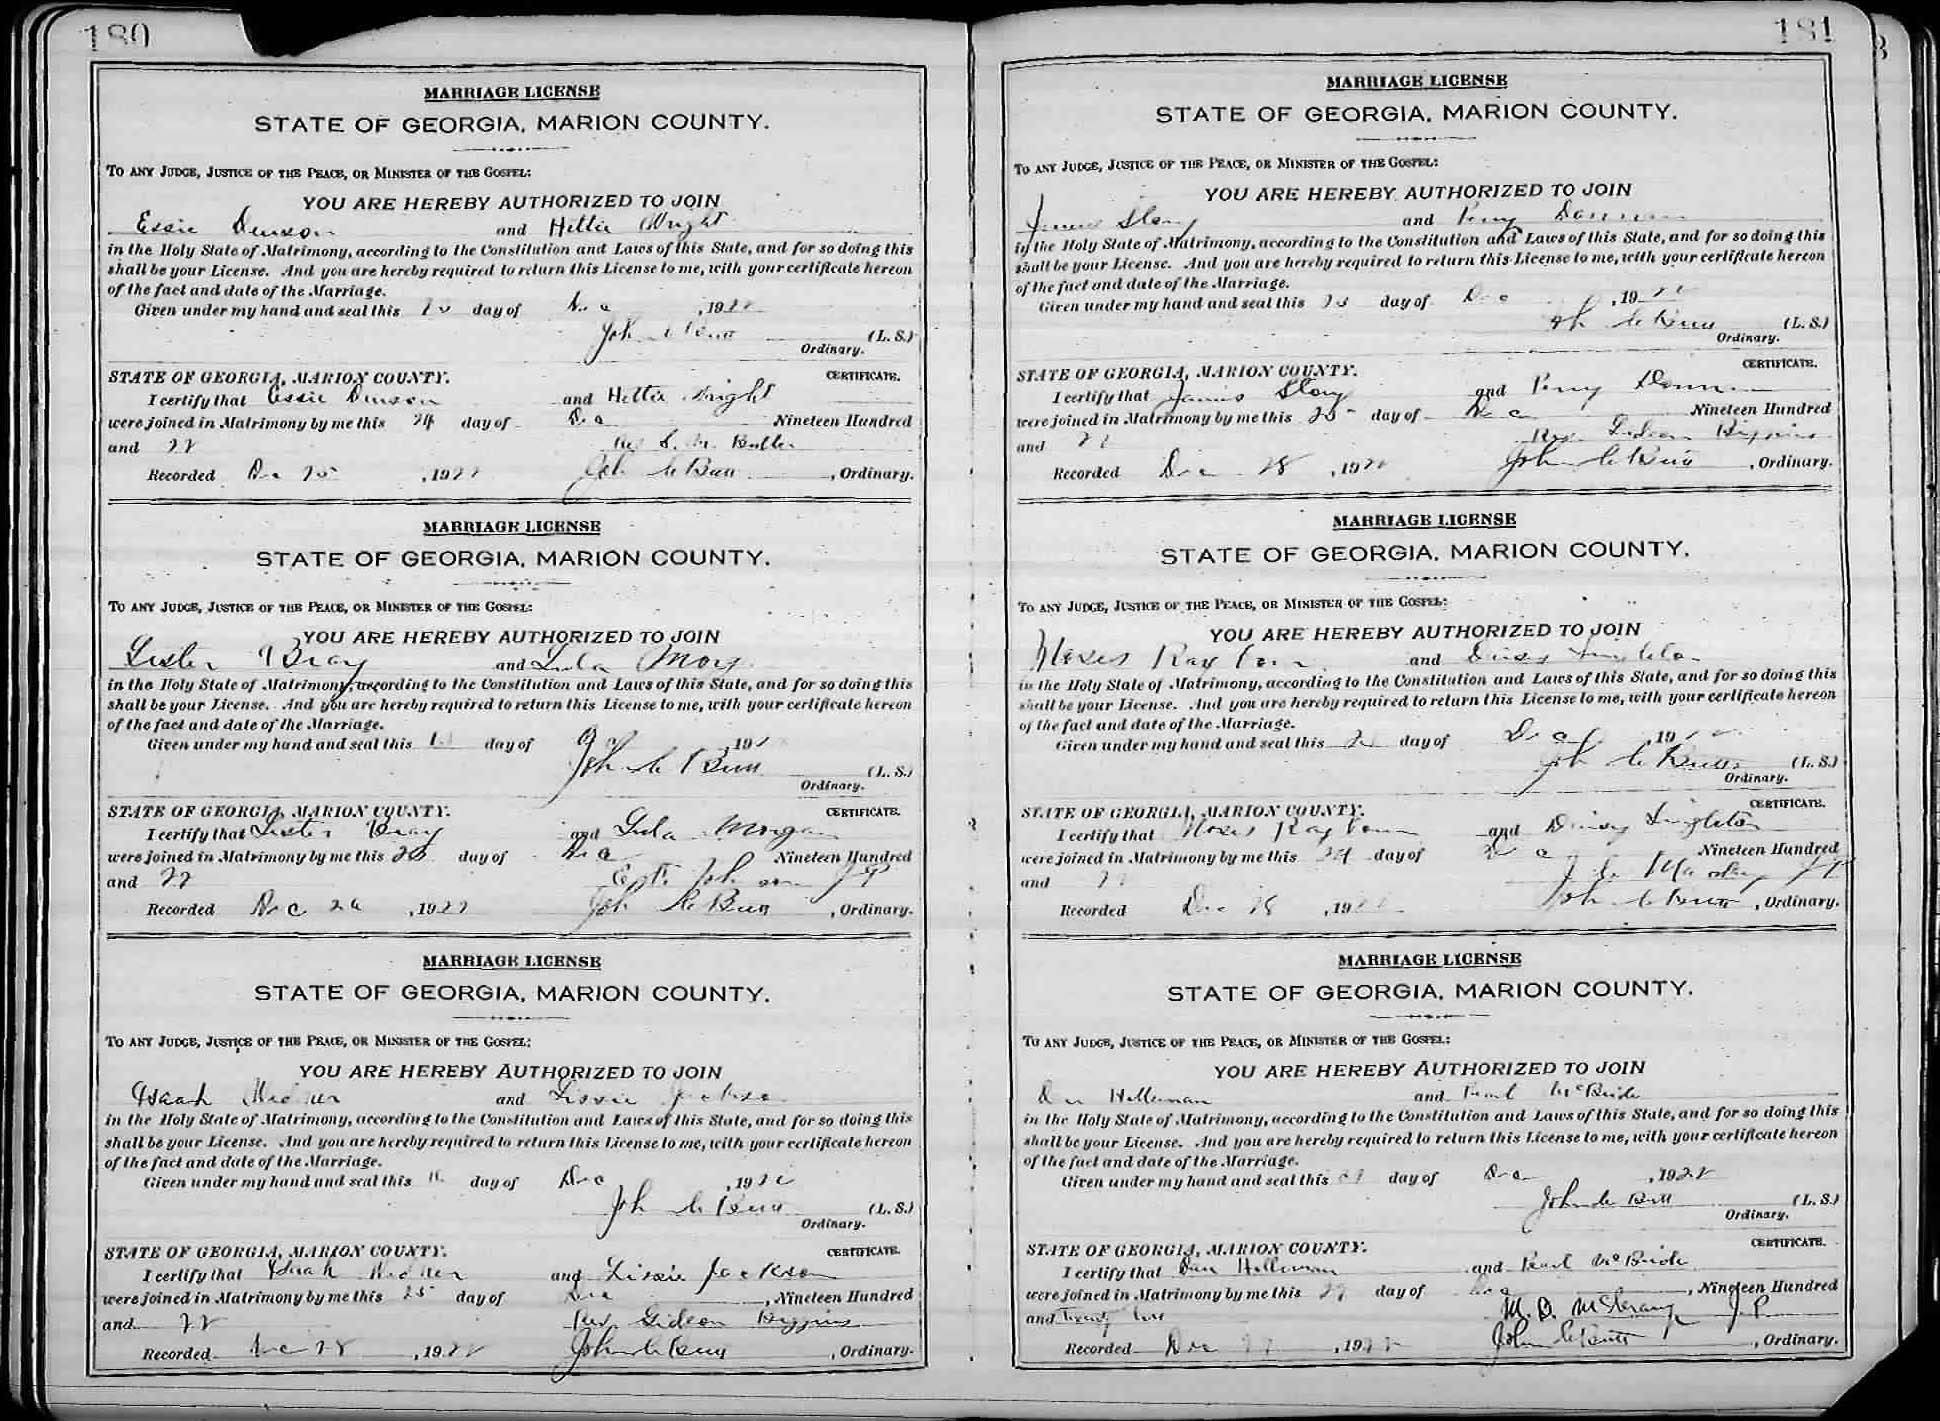 180
MARRIAGE LICENSE
STATE OF GEORGIA, MARION COUNTY.
TO ANY JUDGE, JUSTICE OF THE PEACE, OR MINISTER OF THE GOSPEL:
YOU ARE HEREBY AUTHORIZED TO JOIN
Essie Denson and Hettie Wright
in the Holy State of Matrimony, according to the Constitution and Laws of this State, and for so doing this
shall be your License. And you are hereby required to return this License to me, with your certificate hereon
of the fact and date of the Marriage.
Given under my hand and seal this day of , 1922
John C Butt (L. S.)
Ordinary.
STATE OF GEORGIA, MARION COUNTY. CERTIFICATE.
I certify that Essie Denson and Hettie Wright
were joined in Matrimony by me this 24 day of Dec Nineteen Hundred
and 22 Rev S. M. Butler
Recorded Dec 25 , 1922 John C Butt , Ordinary.
MARRIAGE LICENSE
STATE OF GEORGIA, MARION COUNTY.
TO ANY JUDGE, JUSTICE OF THE PEACE, OR MINISTER OF THE GOSPEL:
YOU ARE HEREBY AUTHORIZED TO JOIN
Lester Bray and Lula Morg
in the Holy State of Matrimony, according to the Constitution and Laws of this State, and for so doing this
shall be your License. And you are hereby required to return this License to me, with your certificate hereon
of the fact and date of the Marriage.
Given under my hand and seal this day of , 19
John C Butt (L. S.)
Ordinary.
STATE OF GEORGIA, MARION COUNTY. CERTIFICATE.
I certify that Lester Bray and Lula Morgan
were joined in Matrimony by me this day of Dec Nineteen Hundred
and 22 Johnson J P
Recorded Dec , 1922 John C Butt , Ordinary.
MARRIAGE LICENSE
STATE OF GEORGIA, MARION COUNTY.
TO ANY JUDGE, JUSTICE OF THE PEACE, OR MINISTER OF THE GOSPEL:
YOU ARE HEREBY AUTHORIZED TO JOIN
Isaah and Lissie Jackson
in the Holy State of Matrimony, according to the Constitution and Laws of this State, and for so doing this
shall be your License. And you are hereby required to return this License to me, with your certificate hereon
of the fact and date of the Marriage.
Given under my hand and seal this day of Dec , 1922
John C Butt (L. S.)
Ordinary.
STATE OF GEORGIA, MARION COUNTY. CERTIFICATE.
I certify that Isaah and Lissie Jackson
were joined in Matrimony by me this 25 day of Dec , Nineteen Hundred
and 22 Rev Gideon Biggins
Recorded Dec 28 , 1922 John C Butt , Ordinary.
181
MARRIAGE LICENSE
STATE OF GEORGIA, MARION COUNTY.
TO ANY JUDGE, JUSTICE OF THE PEACE, OR MINISTER OF THE GOSPEL:
YOU ARE HEREBY AUTHORIZED TO JOIN
James Story and
in the Holy State of Matrimony, according to the Constitution and Laws of this State, and for so doing this
shall be your License. And you are hereby required to return this License to me, with your certificate hereon
of the fact and date of the Marriage.
Given under my hand and seal this day of Dec , 1922
John C Butt (L. S.)
Ordinary.
STATE OF GEORGIA, MARION COUNTY. CERTIFICATE.
I certify that James Story and
were joined in Matrimony by me this 25 day of Dec Nineteen Hundred
and 22 Rev Gideon Biggins
Recorded Dec 28 , 1922 John C Butt , Ordinary.
MARRIAGE LICENSE
STATE OF GEORGIA, MARION COUNTY.
TO ANY JUDGE, JUSTICE OF THE PEACE, OR MINISTER OF THE GOSPEL:
YOU ARE HEREBY AUTHORIZED TO JOIN
Moses and Daisy Singleton
in the Holy State of Matrimony, according to the Constitution and Laws of this State, and for so doing this
shall be your License. And you are hereby required to return this License to me, with your certificate hereon
of the fact and date of the Marriage.
Given under my hand and seal this day of Dec , 19
John C Butt (L. S.)
Ordinary.
STATE OF GEORGIA, MARION COUNTY. CERTIFICATE.
I certify that Moses and Daisy Singleton
were joined in Matrimony by me this 24 day of Dec Nineteen Hundred
and 22
Recorded Dec 28 , 1922 John C Butt , Ordinary.
MARRIAGE LICENSE
STATE OF GEORGIA, MARION COUNTY.
TO ANY JUDGE, JUSTICE OF THE PEACE, OR MINISTER OF THE GOSPEL:
YOU ARE HEREBY AUTHORIZED TO JOIN
Holleman and Pearl McBride
in the Holy State of Matrimony, according to the Constitution and Laws of this State, and for so doing this
shall be your License. And you are hereby required to return this License to me, with your certificate hereon
of the fact and date of the Marriage.
Given under my hand and seal this day of Dec , 1922
John C Butt (L. S.)
Ordinary.
STATE OF GEORGIA, MARION COUNTY. CERTIFICATE.
I certify that Dan Holleman and Pearl McBride
were joined in Matrimony by me this 27 day of Dec , Nineteen Hundred
and Twenty two M. D. J P
Recorded Dec 27 , 1922 John C Butt , Ordinary.